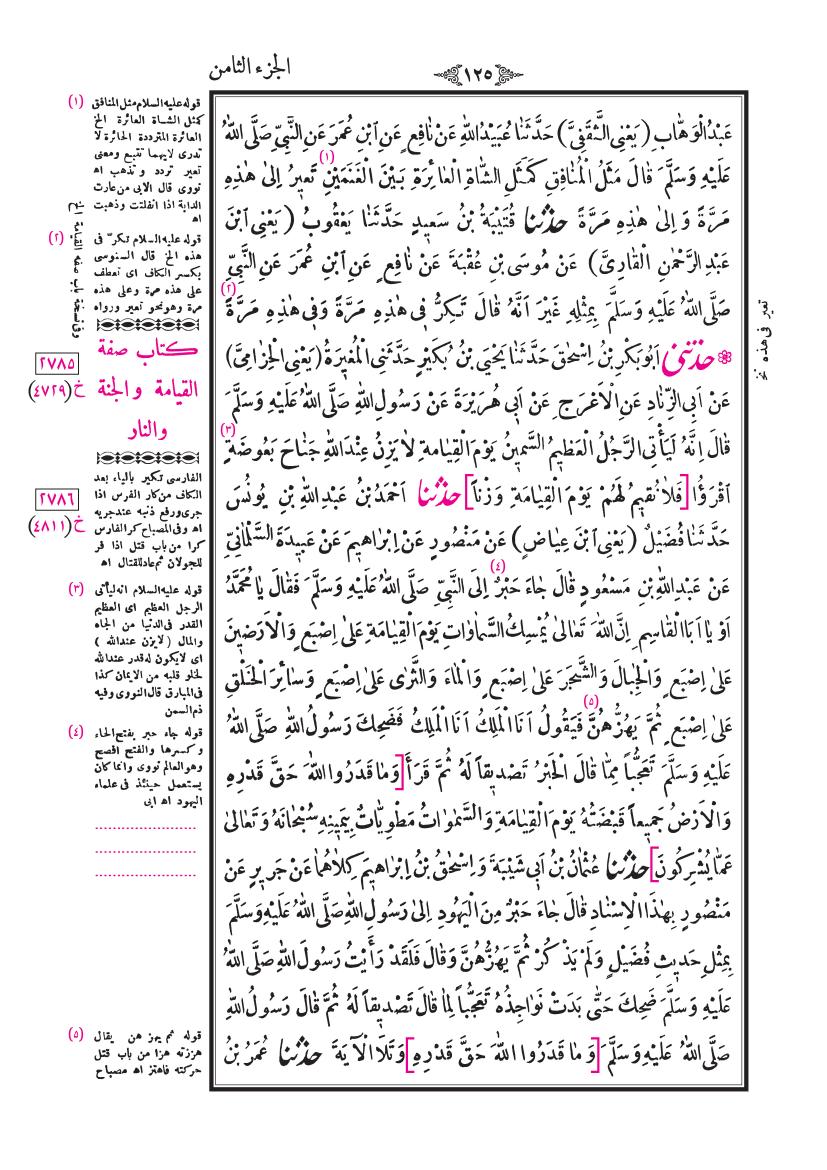 الجزء الثامن
١٢٥
عَبْدُالْوَهَّابِ (يَعْنِى الثَّقَفِىَّ) حَدَّثَنَا عُبَيْدُاللّٰهِ عَنْ نَافِعٍ عَنِ ابْنِ عُمَرَ عَنِ النَّبِىِّ صَلَّى اللّٰهُ
عَلَيْهِ وَسَلَّمَ قَالَ مَثَلُ الْمُنَافِقِ كَمَثَلِ الشَّاةِ الْعَائِرَةِ بَيْنَ الْغَنَمَيْنِ (١) تَعِيرُ اِلىٰ هٰذِهِ
مَرَّةً وَ اِلىٰ هٰذِهِ مَرَّةً حَدَّثَنَا قُتَيْبَةُ بْنُ سَعِيدٍ حَدَّثَنَا يَعْقُوبُ (يَعْنِى ابْنَ
عَبْدِ الرَّحْمٰنِ الْقَارِىَّ) عَنْ مُوسَى بْنِ عُقْبَةَ عَنْ نَافِعٍ عَنِ ابْنِ عُمَرَ عَنِ النَّبِىِّ
صَلَّى اللّٰهُ عَلَيْهِ وَسَلَّمَ بِمِثْلِهِ غَيْرَ اَنَّهُ قَالَ تَكِرُّ فِى هٰذِهِ مَرَّةً وَفِى هٰذِهِ مَرَّةً (٢)
حَدَّثَنِى اَبُوبَكْرِ بْنُ اِسْحٰقَ حَدَّثَنَا يَحْيَى بْنُ بُكَيْرٍ حَدَّثَنِى الْمُغِيرَةُ (يَعْنِى الْحِزَامِىَّ)
عَنْ اَبِى الزِّنَادِ عَنِ الْاَعْرَجِ عَنْ اَبِى هُرَيْرَةَ عَنْ رَسُولِ اللّٰهِ صَلَّى اللّٰهُ عَلَيْهِ وَسَلَّمَ
قَالَ اِنَّهُ لَيَأْتِى الرَّجُلُ الْعَظِيمُ السَّمِينُ يَوْمَ الْقِيَامَةِ لَا يَزِنُ عِنْدَ اللّٰهِ جَنَاحَ بَعُوضَةٍ (٣)
اقْرَؤُا [فَلَا نُقِيمُ لَهُمْ يَوْمَ الْقِيَامَةِ وَزْناً] حَدَّثَنَا اَحْمَدُ بْنُ عَبْدِ اللّٰهِ بْنِ يُونُسَ
حَدَّثَنَا فُضَيْلٌ (يَعْنِى ابْنَ عِيَاضٍ) عَنْ مَنْصُورٍ عَنْ اِبْرَاهِيمَ عَنْ عَبِيدَةَ السَّلْمَانِىِّ
عَنْ عَبْدِ اللّٰهِ بْنِ مَسْعُودٍ قَالَ جَاءَ حَبْرٌ (٤) اِلَى النَّبِىِّ صَلَّى اللّٰهُ عَلَيْهِ وَسَلَّمَ فَقَالَ يَا مُحَمَّدُ
اَوْ يَا اَبَا الْقَاسِمِ اِنَّ اللّٰهَ تَعَالىٰ يُمْسِكُ السَّمَاوَاتِ يَوْمَ الْقِيَامَةِ عَلىٰ اِصْبَعٍ وَالْاَرَضِينَ
عَلىٰ اِصْبَعٍ وَالْجِبَالَ وَالشَّجَرَ عَلىٰ اِصْبَعٍ وَالْمَاءَ وَالثَّرىٰ عَلىٰ اِصْبَعٍ وَسَائِرَ الْخَلْقِ
عَلىٰ اِصْبَعٍ ثُمَّ يَهُزُّهُنَّ (٥) فَيَقُولُ اَنَا الْمَلِكُ اَنَا الْمَلِكُ فَضَحِكَ رَسُولُ اللّٰهِ صَلَّى اللّٰهُ
عَلَيْهِ وَسَلَّمَ تَعَجُّباً مِمَّا قَالَ الْحَبْرُ تَصْدِيقاً لَهُ ثُمَّ قَرَأَ [وَمَا قَدَرُوا اللّٰهَ حَقَّ قَدْرِهِ
وَالْاَرْضُ جَمِيعاً قَبْضَتُهُ يَوْمَ الْقِيَامَةِ وَالسَّمٰوَاتُ مَطْوِيَّاتٌ بِيَمِينِهِ سُبْحَانَهُ وَتَعَالىٰ
عَمَّا يُشْرِكُونَ] حَدَّثَنَا عُثْمَانُ بْنُ اَبِى شَيْبَةَ وَ اِسْحٰقُ بْنُ اِبْرَاهِيمَ كِلَاهُمَا عَنْ جَرِيرٍ عَنْ
مَنْصُورٍ بِهٰذَا الْاِسْنَادِ قَالَ جَاءَ حَبْرٌ مِنَ الْيَهُودِ اِلىٰ رَسُولِ اللّٰهِ صَلَّى اللّٰهُ عَلَيْهِ وَسَلَّمَ
بِمِثْلِ حَدِيثِ فُضَيْلٍ وَلَمْ يَذْكُرْ ثُمَّ يَهُزُّهُنَّ وَقَالَ فَلَقَدْ رَأَيْتُ رَسُولَ اللّٰهِ صَلَّى اللّٰهُ
عَلَيْهِ وَسَلَّمَ ضَحِكَ حَتّٰى بَدَتْ نَوَاجِذُهُ تَعَجُّباً لِمَا قَالَ تَصْدِيقاً لَهُ ثُمَّ قَالَ رَسُولُ اللّٰهِ
صَلَّى اللّٰهُ عَلَيْهِ وَسَلَّمَ [وَ مَا قَدَرُوا اللّٰهَ حَقَّ قَدْرِهِ] وَتَلَا الْآيَةَ حَدَّثَنَا عُمَرُ بْنُ
تعير فى هذه نخ
(١) قوله عليه السلام مثل المنافق
كمثل الشاة العائرة الخ
العائرة المترددة الحائرة لا
تدرى لايهما تتبع ومعنى
تعير تردد و تذهب اه
نووى قال الابى من عارت
الدابة اذا انفلتت وذهبت
اه
(٢) قوله عليه السلام تكرّ فى
هذه الخ قال السنوسى
بكسر الكاف اى تعطف
على هذه مرة وعلى هذه
مرة وهو نحو تعير ورواه
وفى نسخة باب صفة القيامة الخ
كتاب صفة
القيامة والجنة
والنار
٢٧٨٥
خ (٤٧٢٩)
٢٧٨٦
خ (٤٨١١)
الفارسى تكير بالياء بعد
الكاف من كار الفرس اذا
جرى ورفع ذنبه عند جريه
اه وفى المصباح كر الفارس
كرا من باب قتل اذا فر
للجولان ثم عاد للقتال اه
(٣) قوله عليه السلام انه ليأتى
الرجل العظيم اى العظيم
القدر فى الدنيا من الجاه
والمال (لا يزن عند الله)
اى لا يكون له قدر عند الله
لخلو قلبه من الايمان كذا
فى المبارق قال النووى وفيه
ذم السمن
(٤) قوله جاء حبر بفتح الحاء
وكسرها والفتح افصح
وهو العالم نووى وانما كان
يستعمل حينئذ فى علماء
اليهود اه ابى
(٥) قوله ثم يهز هن يقال
هززته هزا من باب قتل
حركته فاهتز اه مصباح